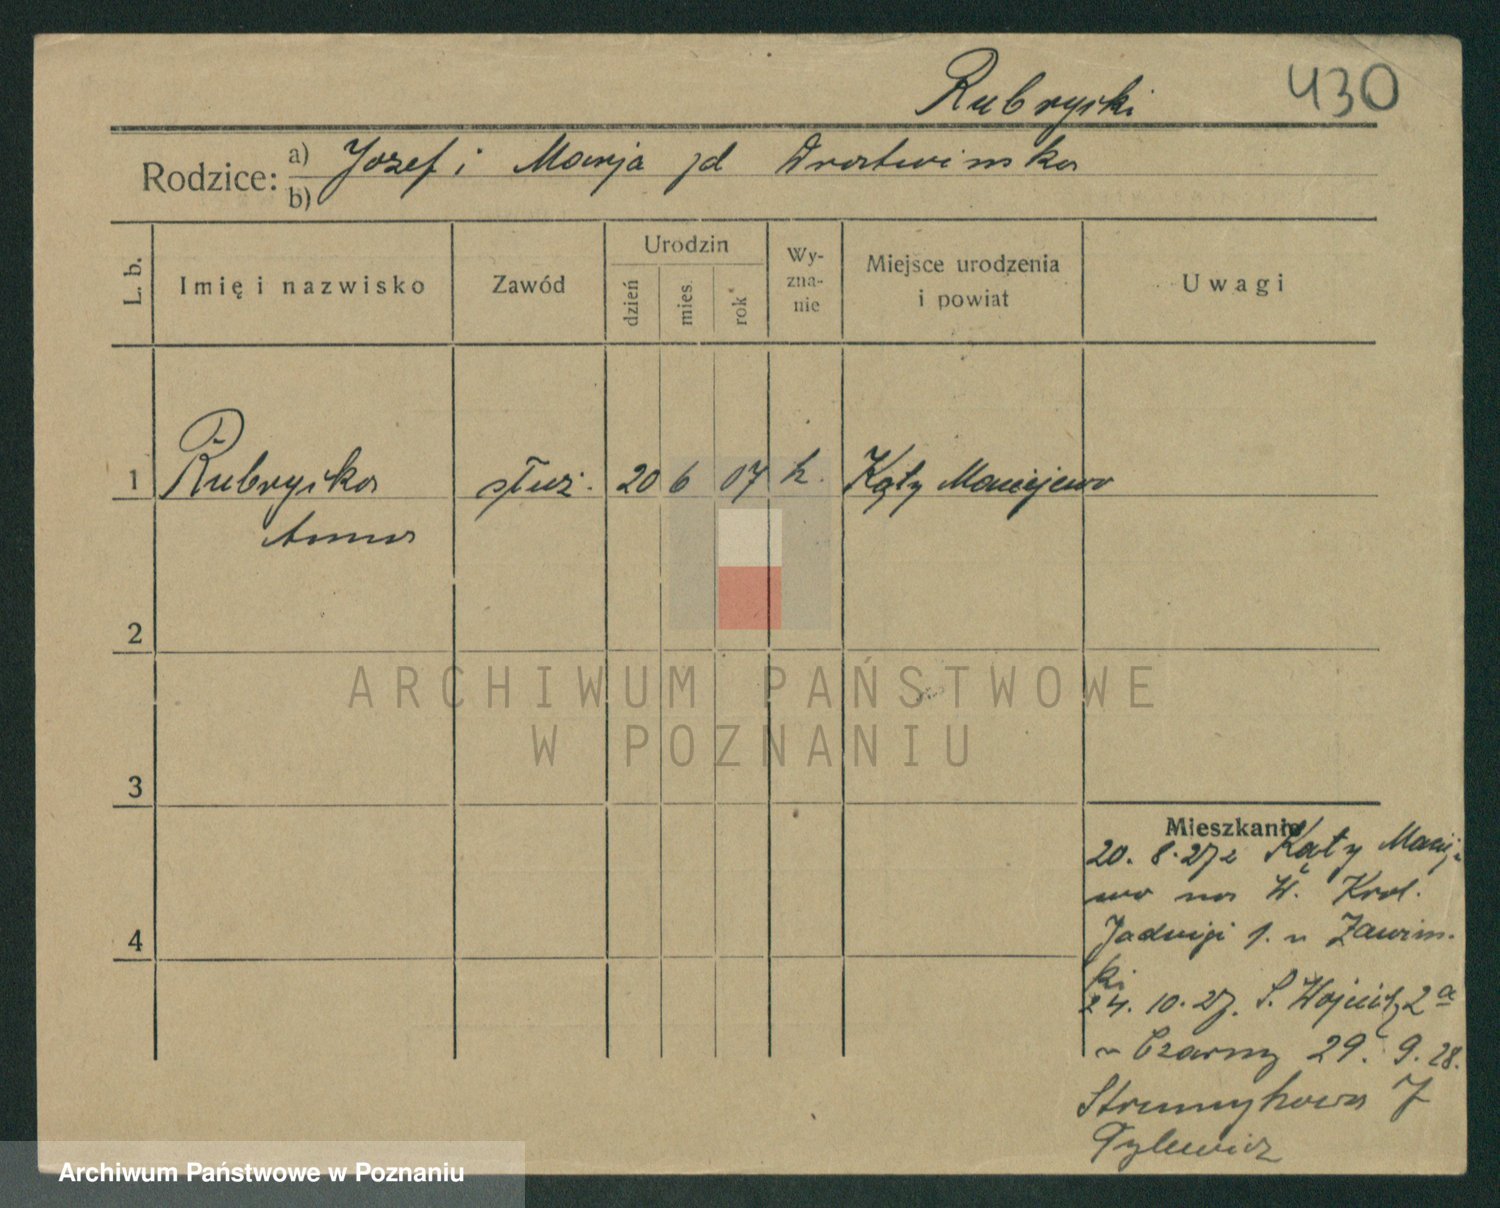 430
Rubryski
Rodzice: a) Jozef i Marja jd
b)
L. b.
Imię i nazwisko
Zawód
Urodzin
dzień
mies.
rok
Wy-
zna-
nie
Miejsce urodzenia
i powiat
Uwagi
1 Rubryska służ. 20 6 07 k. Kąty Maciejewo
Anna
2
3
4
Mieszkanie
20. 8. 27 z Kąty Macij
wo na W. Krol.
Jadwigi 1. u Zawim.
ki
24. 10. 27. Ś. Wojciech 2a
u Czarny 29. 9. 28.
Strumykowa 7
Tylewicz
ARCHIWUM PAŃSTWOWE
W POZNANIU
Archiwum Państwowe w Poznaniu